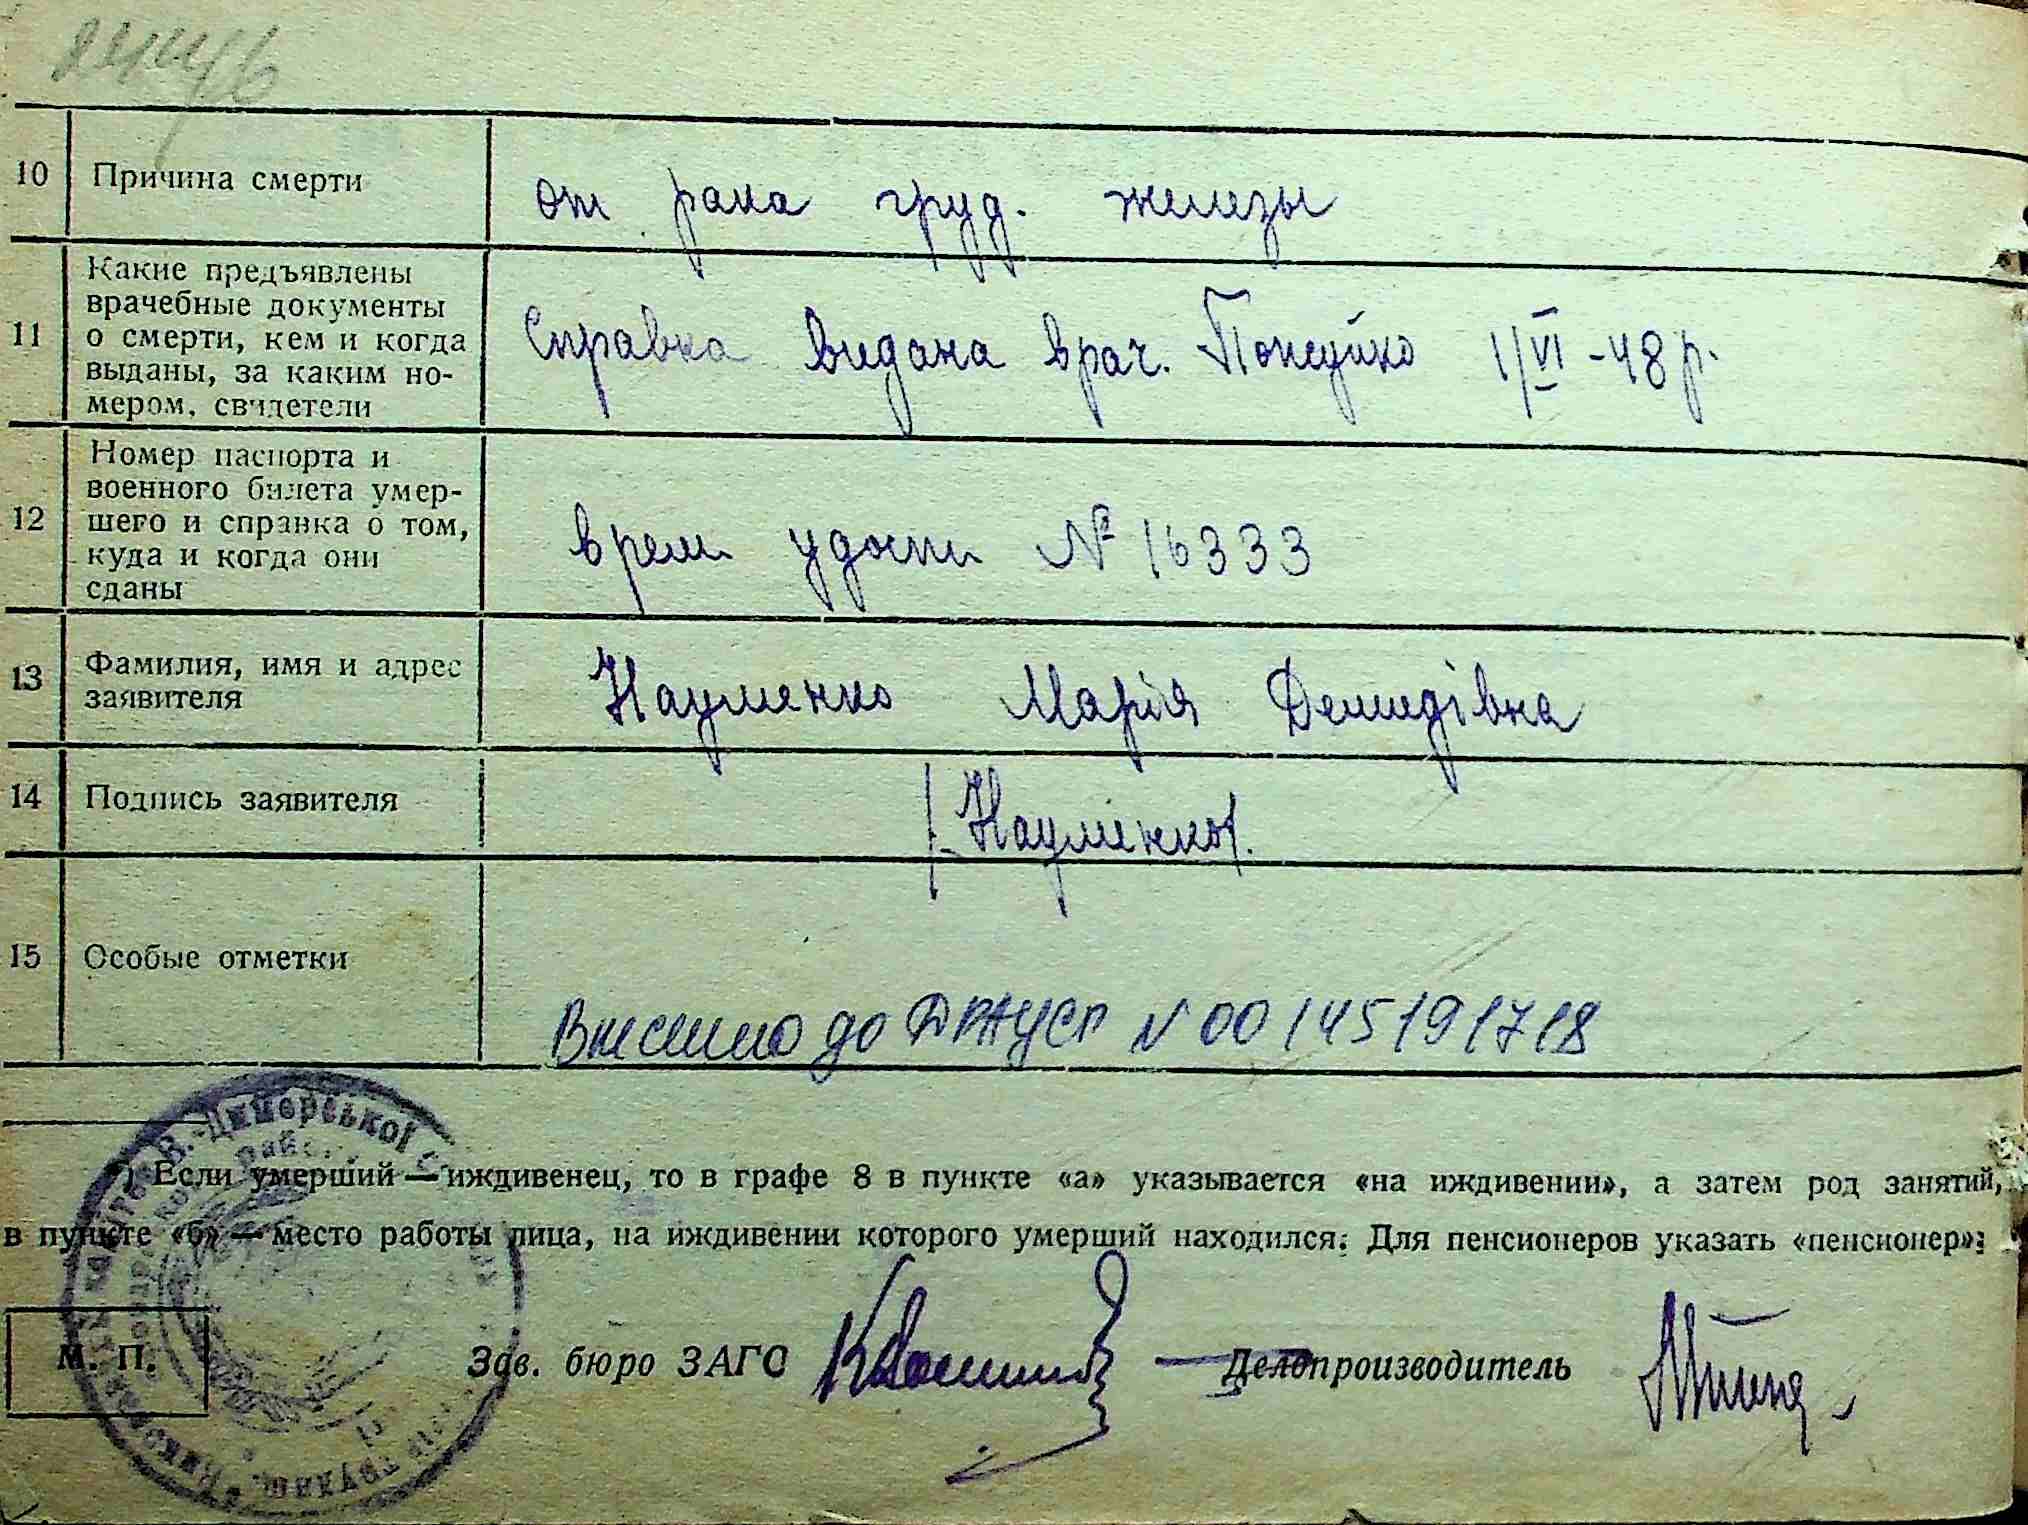 10 Причина смерти от рака груд. железы
11 Какие предъявлены
врачебные документы
о смерти, кем и когда
выданы, за каким но-
мером, свидетели
Справка видана врач. 1/VI-48 р.
12 Номер паспорта и
военного билета умер-
шего и справка о том,
куда и когда они
сданы
врем удост № 16333
13 Фамилия, имя и адрес
заявителя
Науменко Марія Демидівна
14 Подпись заявителя /Науменко/.
15 Особые отметки
Внесено до ДРАЦСГ N 00145191718
В.-Димерської
*) Если умерший — иждивенец, то в графе 8 в пункте «а» указывается «на иждивении», а затем род занятий,
в пункте «б» — место работы лица, на иждивении которого умерший находился. Для пенсионеров указать «пенсионер».
М. П. Зав. бюро ЗАГС Делопроизводитель